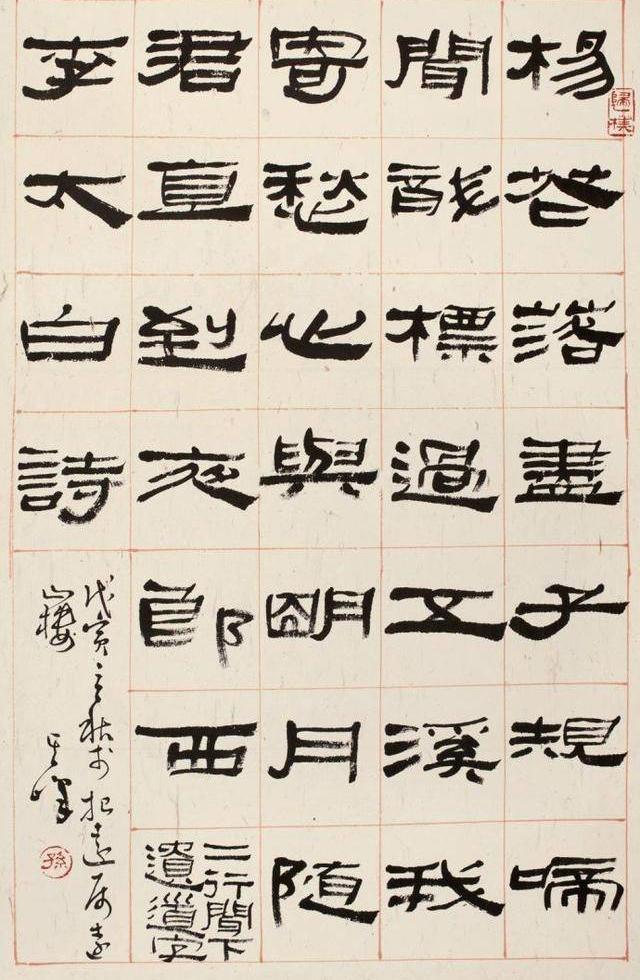 楊花落盡子規啼
聞龍標過五溪我
寄愁心與明月隨
君直到夜郎西
二行聞下
遺道字
李太白詩
戊寅之秋於
山樓
其峰
孫